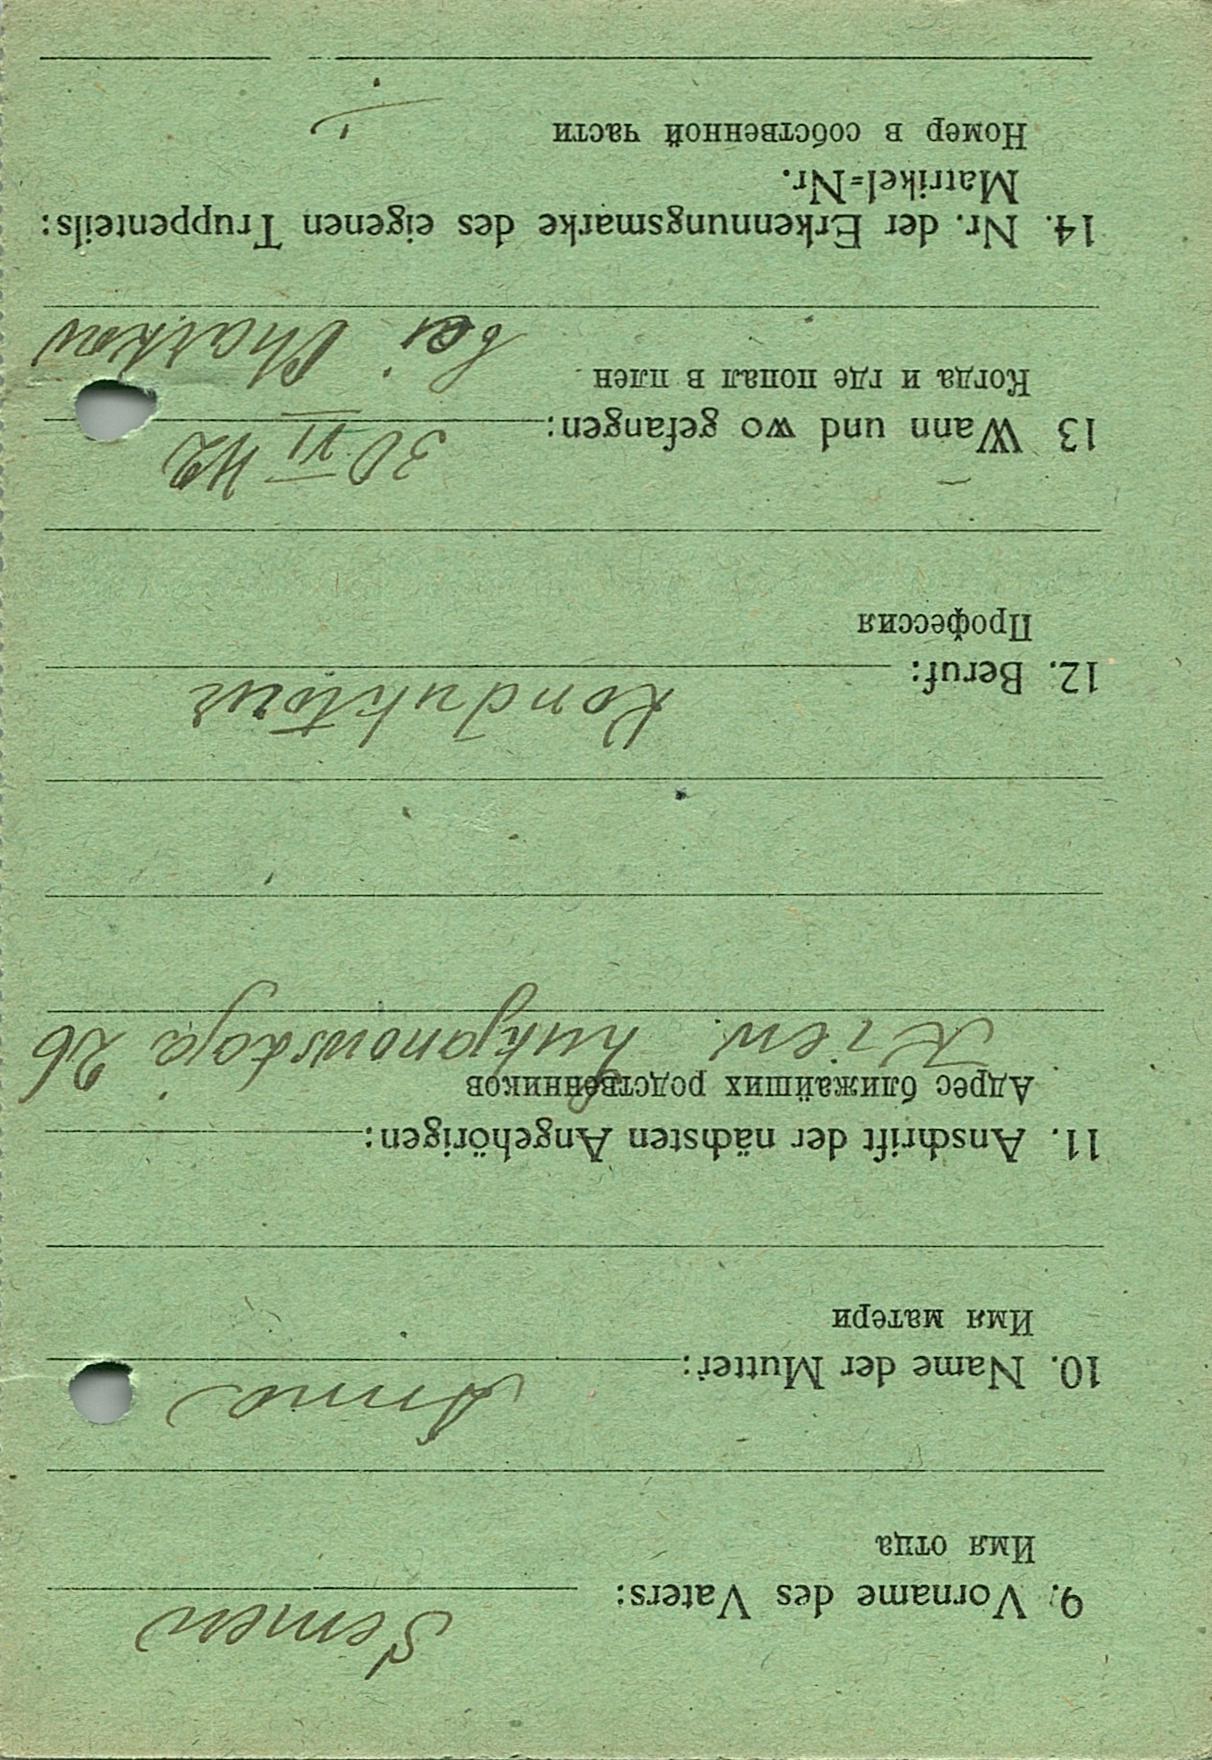 9. Vorname des Vaters: Semen
Имя отца
10. Name der Mutter: Anna
Имя матери
11. Anschrift der nächsten Angehörigen:
Адрес ближайших родственников
Kiew. Lukjanowskaja 26
12. Beruf: Kondukteur
Профессия
13 Wann und wo gefangen: 30 VI 42
Когда и где попал в плен bei Charkow
14. Nr. der Erkennungsmarke des eigenen Truppenteils:
Matrikel=Nr.
Номер в собственной части